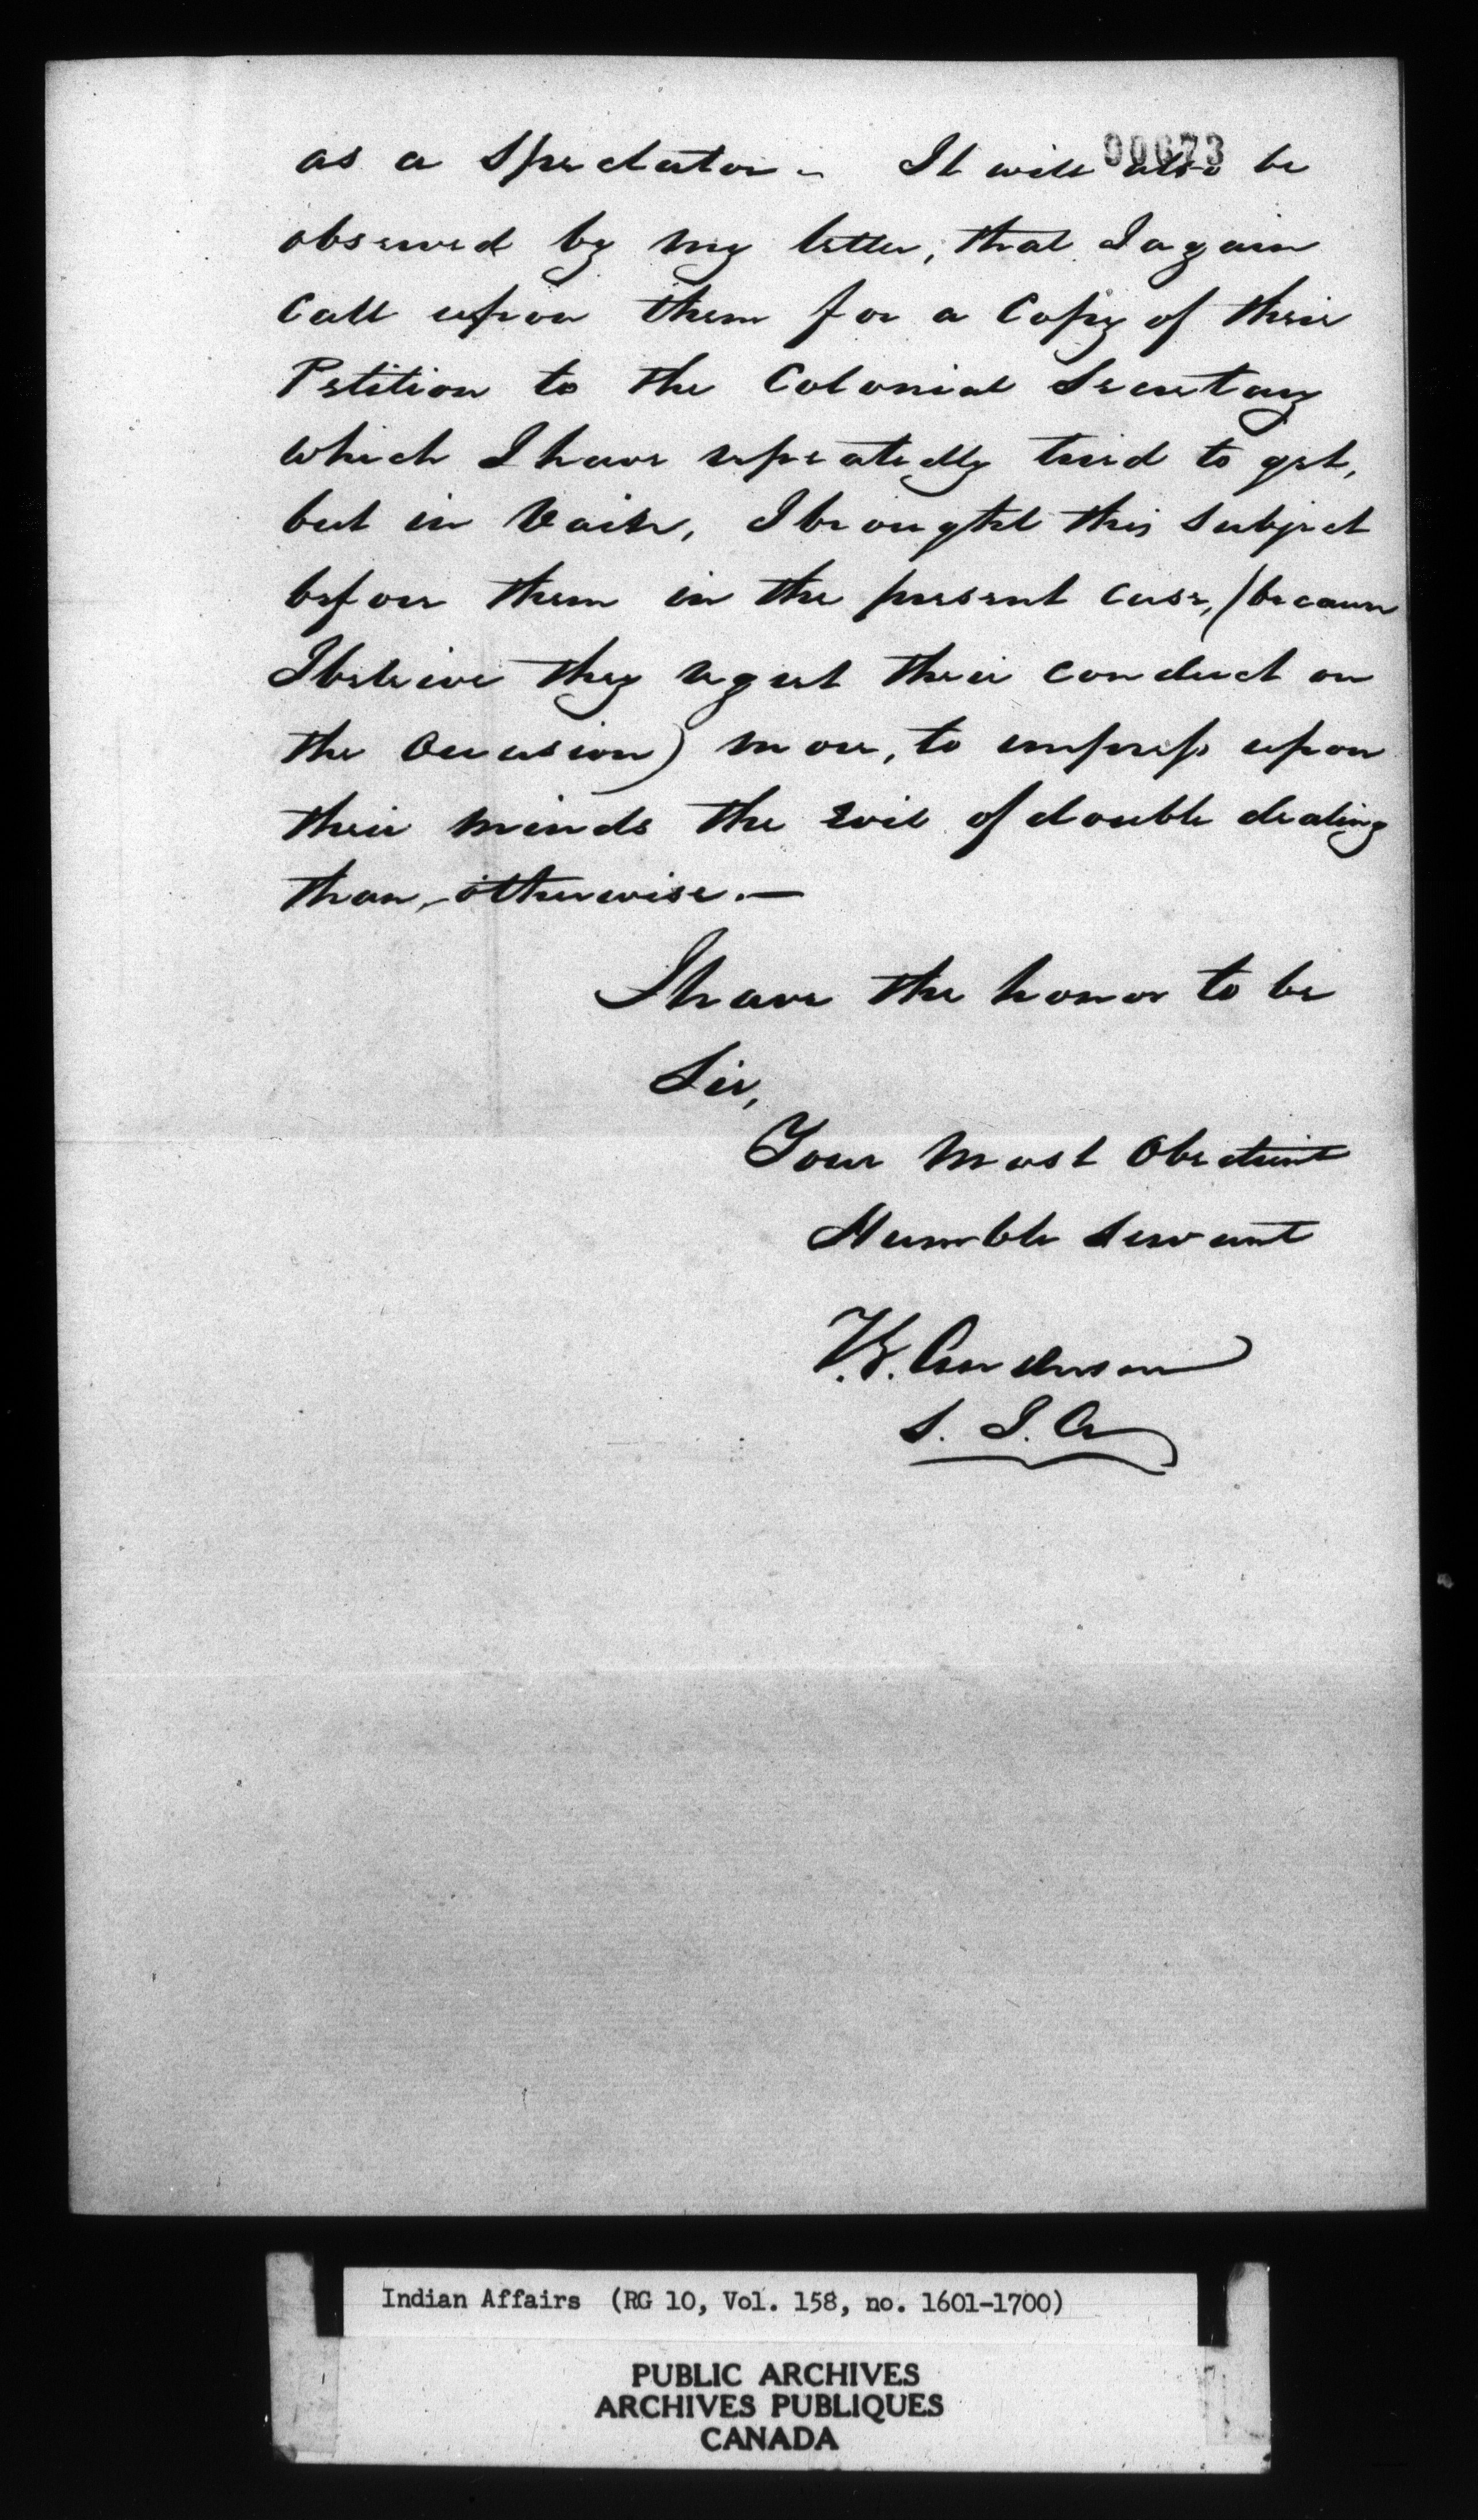 00673
as a Spectator - It will also be
observed by my letter, that I again
Call upon them for a Copy of their
Petition to the Colonial Secretary
which I have repeatedly tried to get,
but in Vain, I brought this subject
before them in the present case, (because
I beleive they regret their conduct on
the Occasion) more, to impress upon
their minds the evil of double dealing
than, otherwise. —
I have the honor to be
Sir,
Your Most Obedient
Humble Servant
T.G. Anderson
S. I. A
Indian Affairs (RG 10, Vol. 158, no. 1601-1700)
PUBLIC ARCHIVES
ARCHIVES PUBLIQUES
CANADA